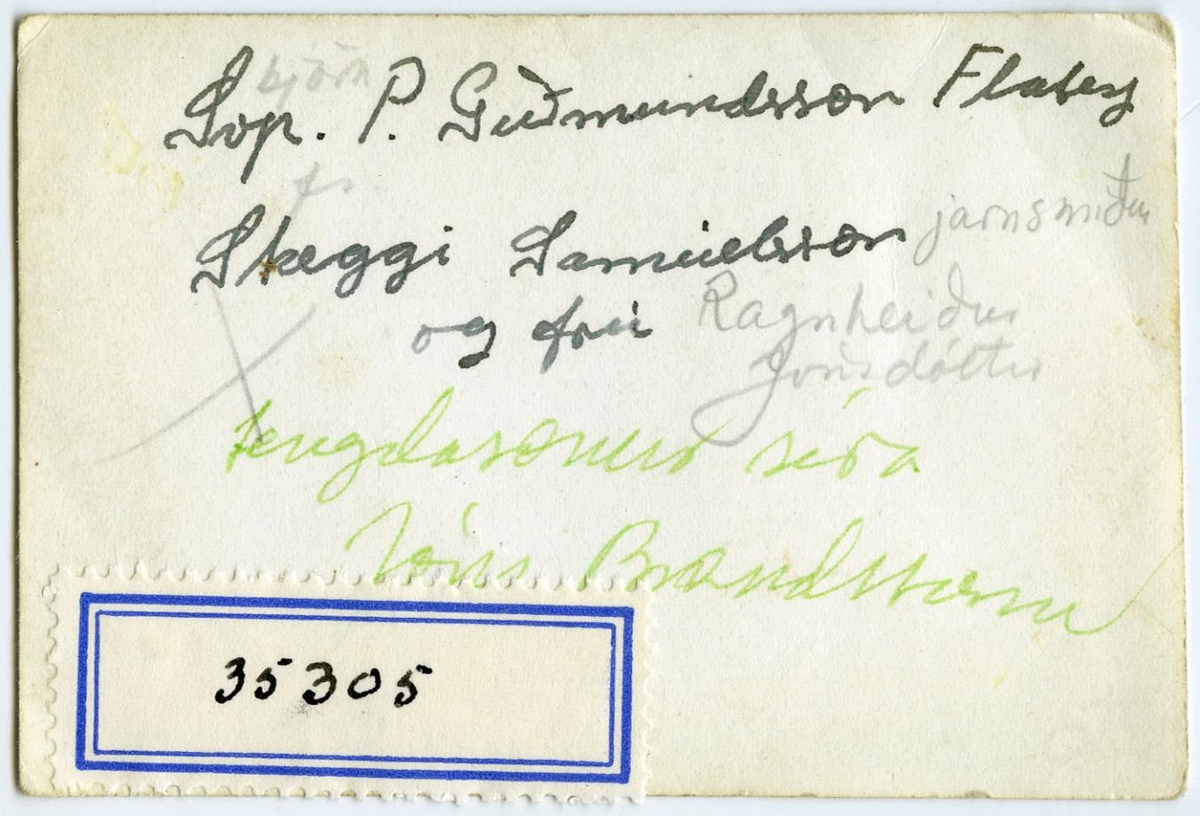 björn
Svp. P. Guðmundsson Flatey
Skeggi Samúelsson járnsmiður
og frú Ragnheiður
Jónsdóttir
tengdasonur séra
Jóns Brandssonar
35305